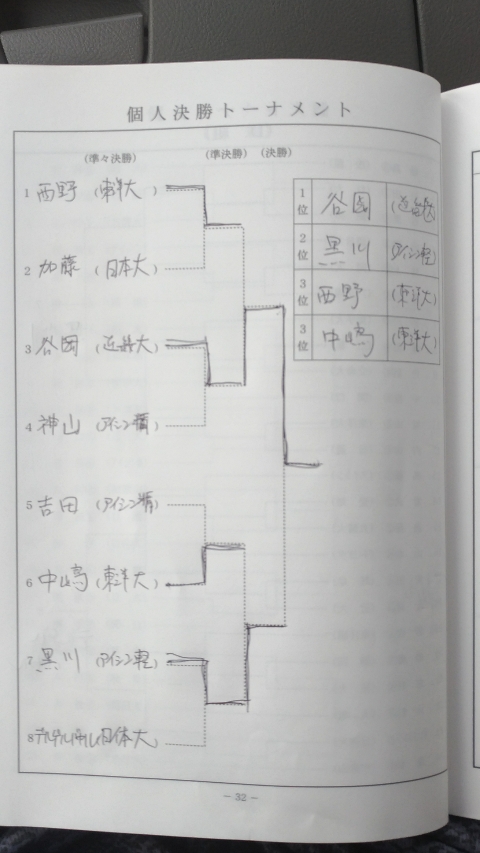 個人決勝トーナメント
(準々決勝) (準決勝) (決勝)
1 西野 (東洋大)
2 加藤 (日本大)
3 谷岡 (近畿大)
4 神山 (アイシン精)
5 吉田 (アイシン精)
6 中嶋 (東洋大)
7 黒川 (アイシン軽)
8 日体大)
1位 谷岡 (近畿大)
2位 黒川 (アイシン軽)
3位 西野 (東洋大)
3位 中嶋 (東洋大)
- 32 -